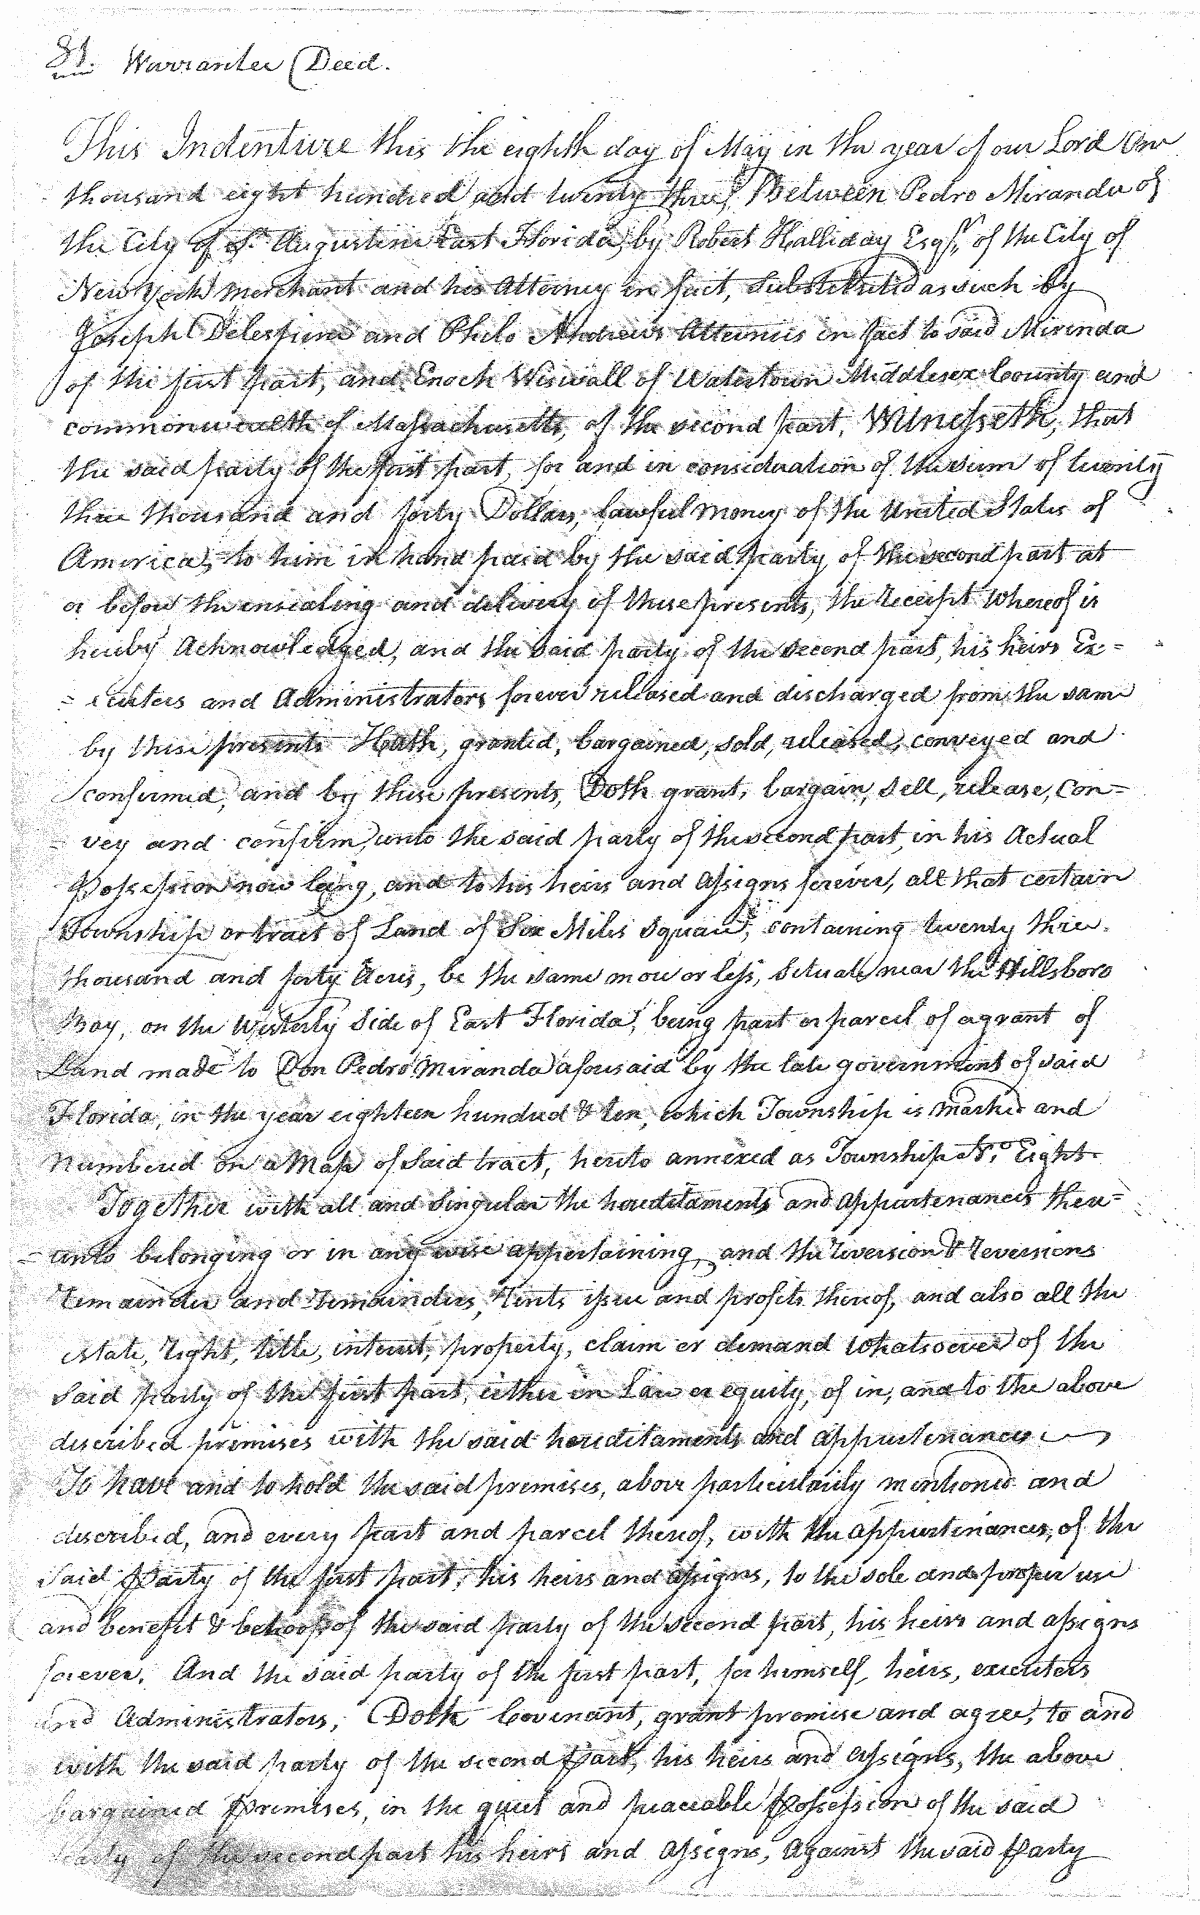 81. Warrantee Deed.
This Indenture this the eighth day of May in the year of our Lord One
thousand eight hundred and twenty three, Between Pedro Miranda of
the City of St. Augustine East Florida, by Robert Halliday Esqr. of the City of
New York merchant and his Attorney in fact, substituted as such by
Joseph Delespine and Philo Andrews Attornies in fact to said Mirinda
of the first part, and Enoch Wiswall of Watertown Middlesex County and
commonwealth of Massachusetts, of the second part, Witnesseth, that
the said party of the first part, for and in consideration of the sum of twenty
three thousand and forty Dollars, lawful money of the United States of
America, to him in hand paid by the said party of the second part at
or before the ensealing and delivery of these presents, the receipt whereof is
hereby Acknowledged, and the said party of the second part, his heirs Ex:=
= ecuters and Administrators forever released and discharged from the same
by these presents Hath, granted, bargained, sold, released, conveyed and
confirmed, and by these presents, Doth grant, bargain, sell, release, con=
= vey and confirm, unto the said party of the second part, in his Actual
Possession now being, and to his heirs and Assigns forever, all that certain
Township or tract of Land of Six Miles square, containing twenty three
thousand and forty Acres, be the same more or less, Situate near the Hillsboro
Bay, on the Westerly Side of East Florida, being part or parcel of a grant of
Land made to Don Pedro Miranda aforesaid by the late government of said
Florida, in the year eighteen hundred & ten, which Township is marked and
numbered on a Map of said tract, hereto annexed as Township No. Eight.
Together with all and singular the hereditaments and appurtenances there=
= unto belonging or in any wise appertaining, and the reversion & reversions
remainder and remainders, rents issue and profits thereof, and also all the
estate, right, title, interest, property, claim or demand whatsoever of the
said party of the first part, either in Law or equity, of in, and to the above
described premises with the said hereditaments and appurtenances
To have and to hold the said premises, above particularily mentioned and
described, and every part and parcel thereof, with the appurtenances, of the
said party of the first part, his heirs and assigns, to the sole and proper use
and benefit & behoof of the said party of the second part, his heirs and assigns
forever. And the said party of the first part, for himself, heirs, executers
and Administrators, Doth Covenant, grant promise and agree, to and
with the said party of the second part, his heirs and assigns, the above
bargained Premises, in the quiet and peaceable Possession of the said
party of the second part his heirs and Assigns, Against the said Party